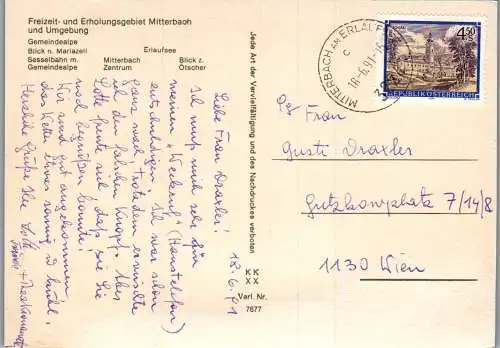 Freizeit- und Erholungsgebiet Mitterbach
und Umgebung
Gemeindealpe
Blick n. Mariazell
Erlaufsee
Sesselbahn m.
Gemeindealpe
Mitterbach
Zentrum
Blick z.
Ötscher
Jede Art der Vervielfältigung und des Nachdruckes verboten
KK
XX
Verl. Nr.
7677
18.6.91
Liebe Frau Draxler!
Ich muß mich sehr für
meinen "Weckruf" (Haustelefon)
entschuldigen. Ich war schon
ganz nach, trotzdem erwischte
ich den falschen Knopf. Aber
Lotte freute sich, daß sie Sie
noch begrüßen konnte.
Wir sind gut angekommen
das Wetter etwas sonnig u.
Herzliche Grüße Ihre Lotte
MITTERBACH AM ERLAUF
18.-6.91-15
c
4.50
REPUBLIK ÖSTERREICH
Frau
Gusti Draxler
Gutzkowplatz 7/14/8
1130 Wien